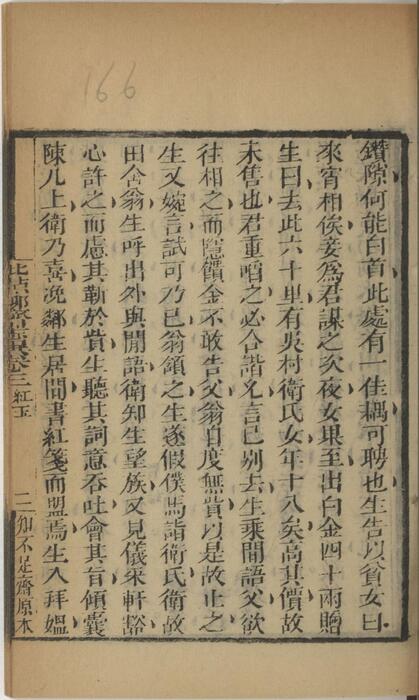 166
鑽隙何能白首此處有一佳耦可聘也生告以貧女曰
來宵相俟妾為君謀之次夜女果至出白金四十兩贈
生曰去此六十里有吳村衛氏女年十八矣高其價故
未售也君重啗之必合諧允言已别去生乘閒語父欲
往相之而隱饋金不敢告父翁自度無貲以是故止之
生又婉言試可乃已翁頷之生遂假僕馬詣衛氏衛故
田舍翁生呼出外與閒語衛知生望族又見儀采軒豁
心許之而慮其靳於貲生聽其詞意吞吐會其旨傾囊
陳几上衛乃喜浼鄰生居間書紅箋而盟焉生入拜媼
卷三 紅玉
二 知不足齋原本